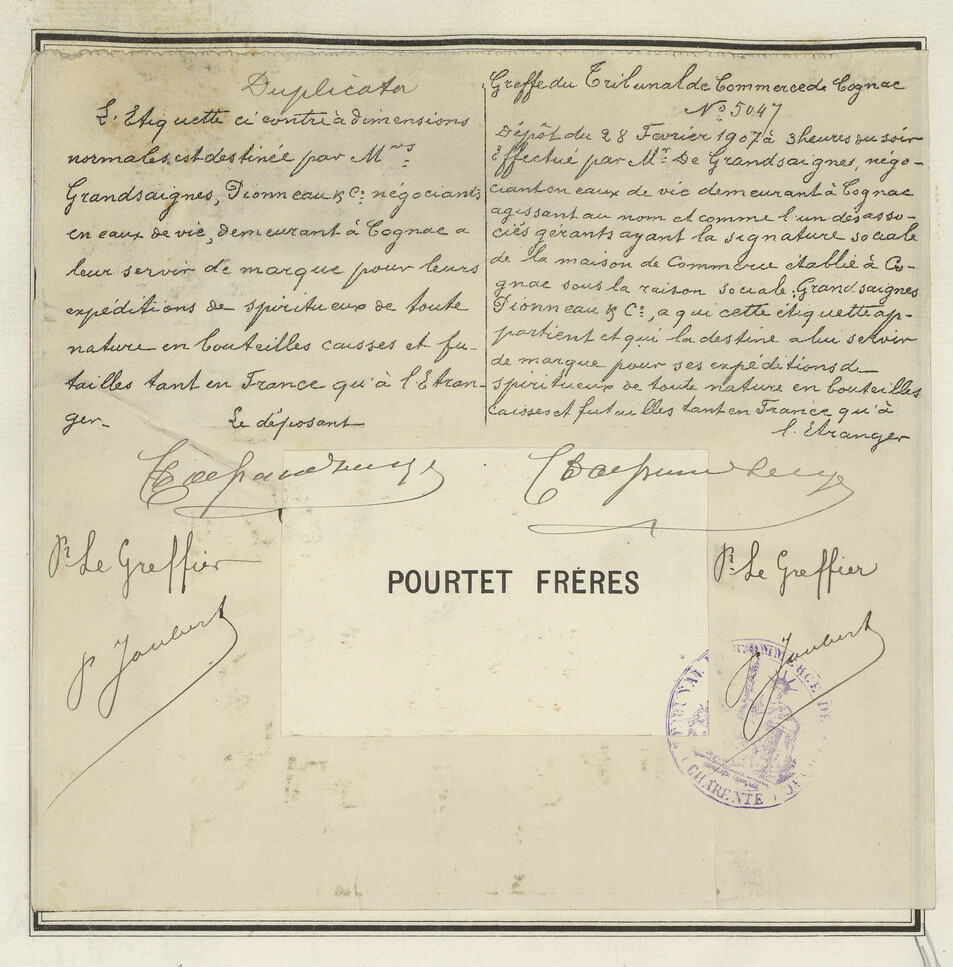 Duplicata
L'Etiquette ci contre à dimensions
normales est destinée par Mrs
Grandsaignes, Pionneau & Cie négociants
en eaux de vie, demeurant à Cognac a
leur servir de marque pour leurs
expéditions de spiritueux de toute
nature en bouteilles caisses et fu-
tailles tant en France qu'à l'Etran-
ger.
Le déposant
Pr Le Greffier
P Joubert
Greffe du Tribunal de Commerce de Cognac
No 5047
Dépôt du 28 Fevrier 1907 à 3 heures du soir
Effectué par Mr De Grandsaignes, négo-
ciant en eaux de vie demeurant à Cognac
agissant au nom et comme l'un des asso-
ciés gérants ayant la signature sociale
de la maison de Commerce établie à Co-
gnac sous la raison sociale: Grandsaignes
Pionneau & Cie, a qui cette étiquette ap-
partient et qui la destine a lui servir
de marque pour ses expéditions de
spiritueux de toute nature en bouteilles
caisses et futailles tant en France qu'à
l'Etranger
Pr Le Greffier
P Joubert
POURTET FRÈRES
TRIBUNAL DE COMMERCE DE
CHARENTE